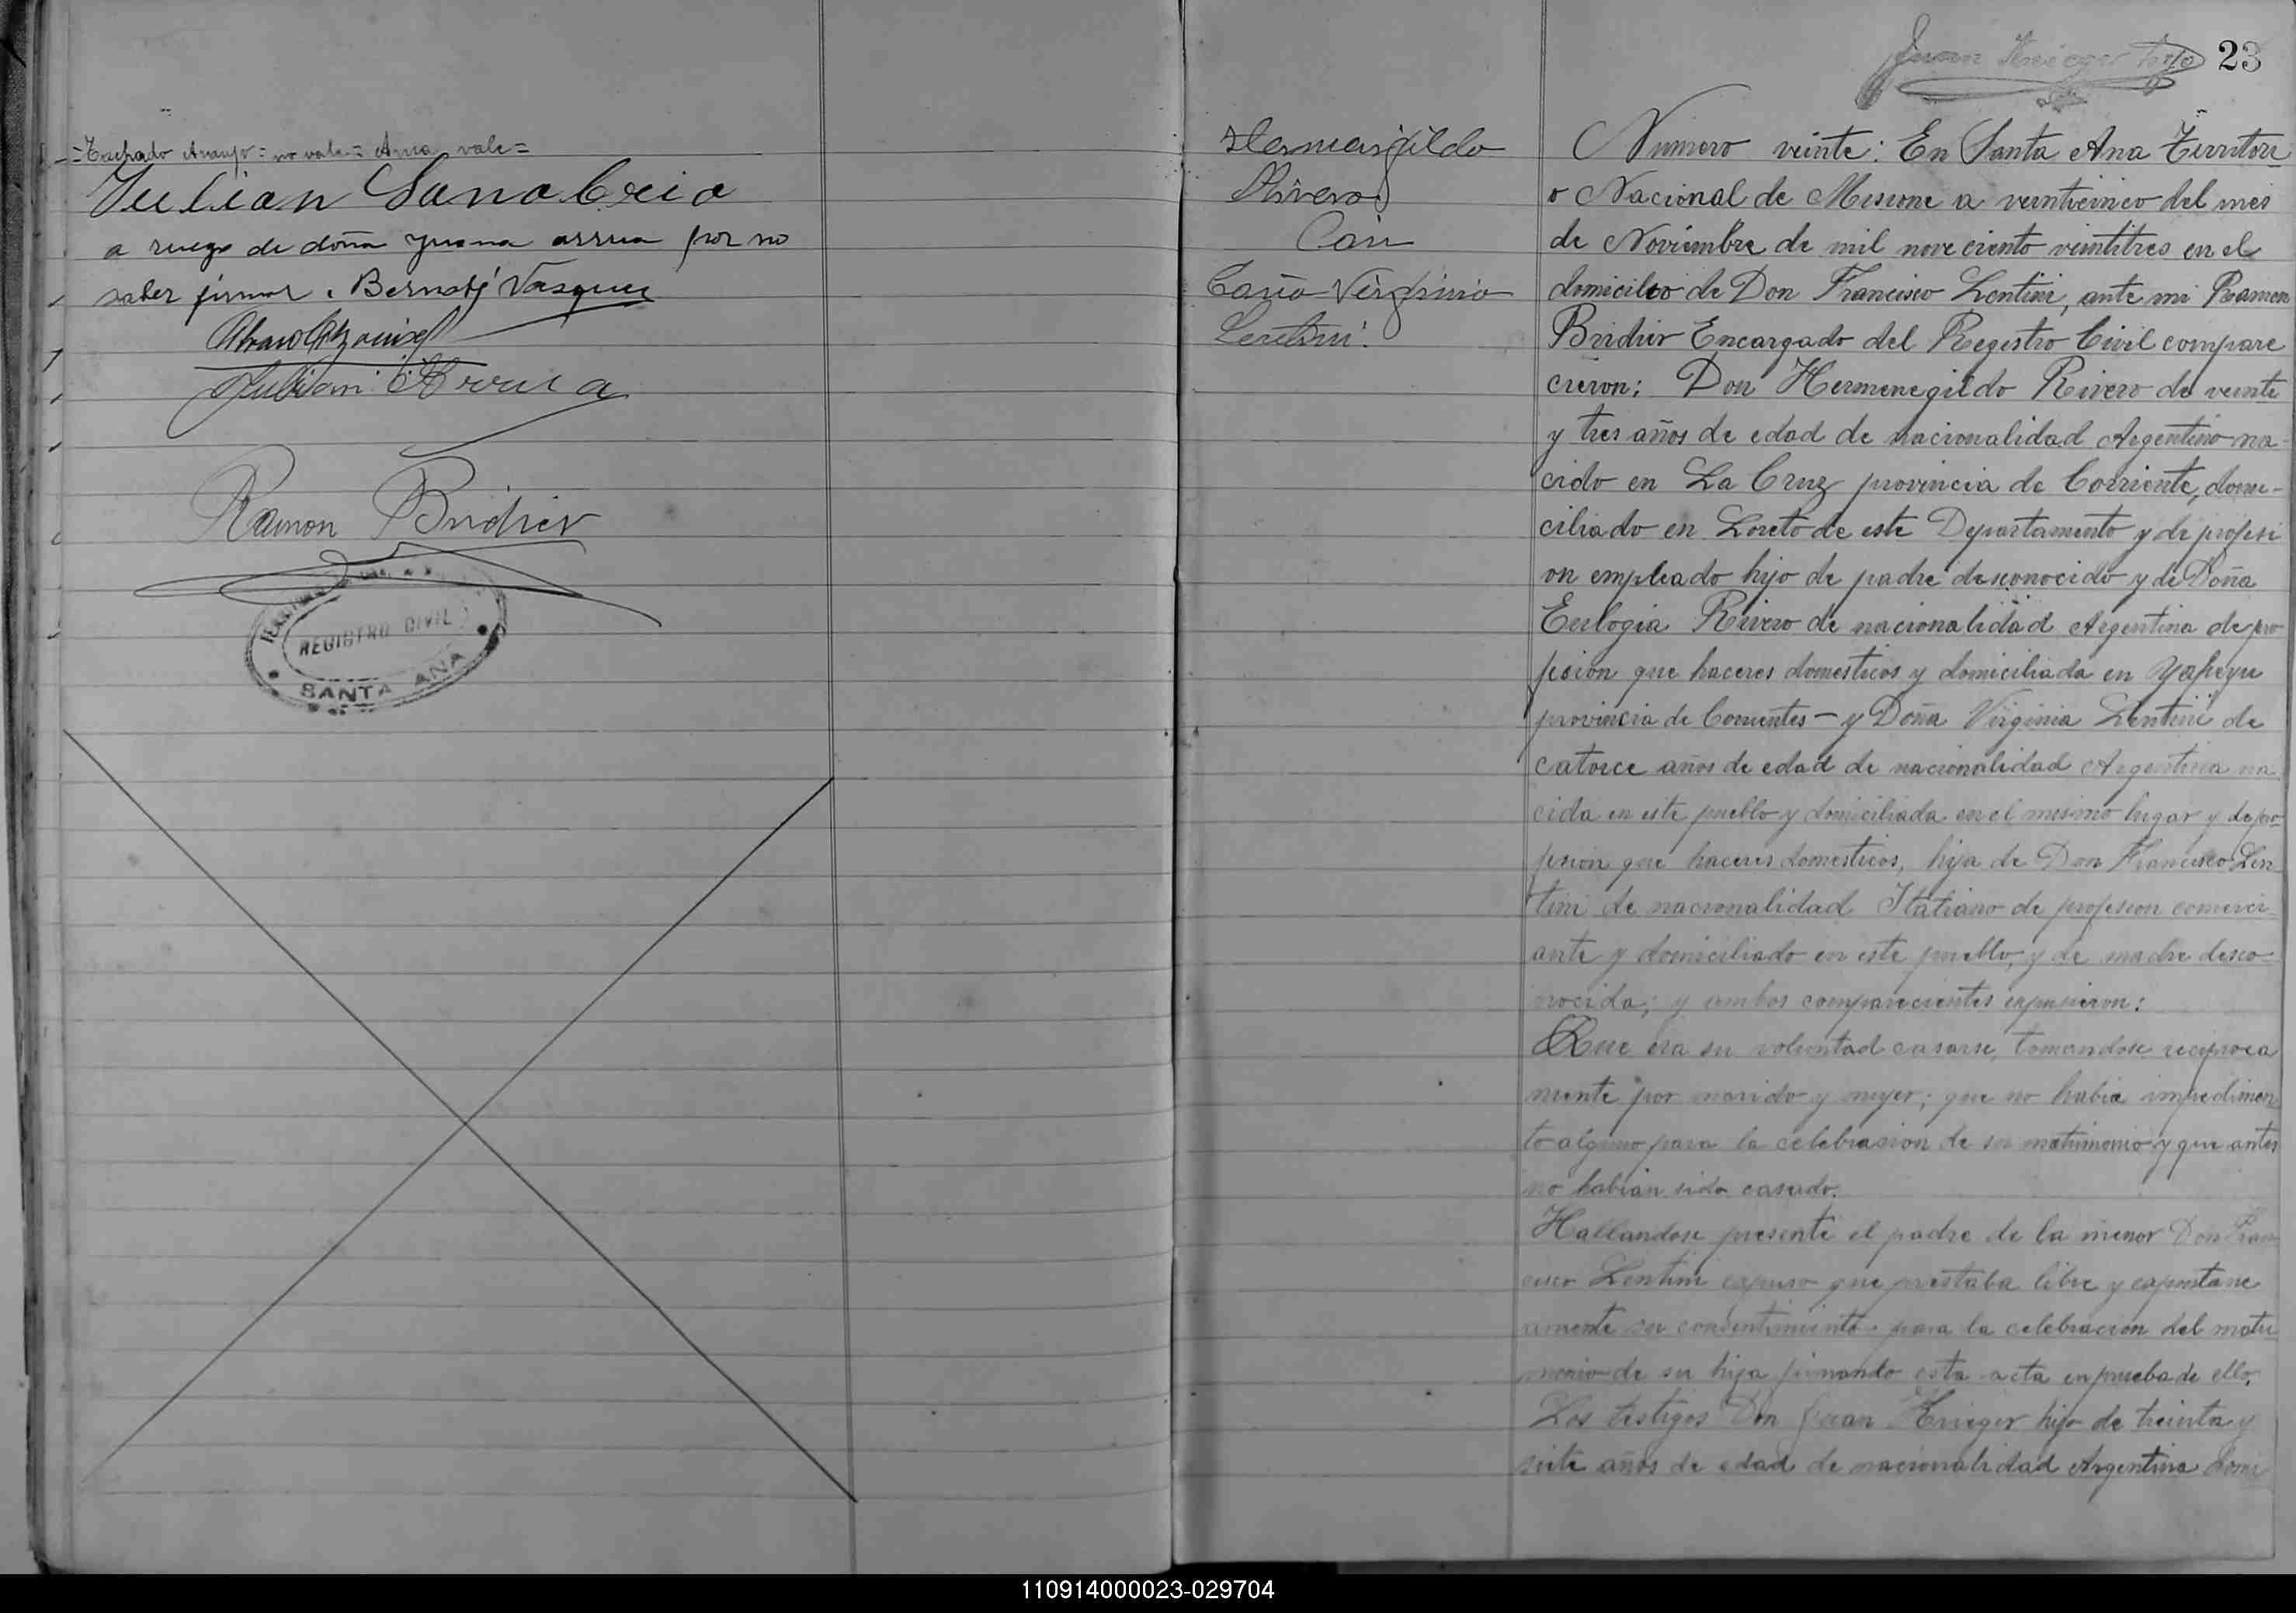 =Tachado Araujo= no vale= Arrua vale=
Julian Sanabria
a ruego de doña Juana arrua por no
saber firmar. Bernabé Vasquez
Julian Arrua
Ramon Bridier
REGISTRO CIVIL
SANTA ANA
Juan Krieger hijo
23
Hermenjildo
Rivero
Con
Doña Virginia
Lentini.
Numero veinte: En Santa Ana Territori
o Nacional de Misione a veinticinco del mes
de Noviembre de mil nove ciento veintitres en el
domicilio de Don Francisco Lentini, ante mi Ramon
Bridier Encargado del Registro Civil compare
cieron: Don Hermenegildo Rivero de veinte
y tres años de edad de nacionalidad Argentino na-
cido en La Cruz provincia de Corriente, domi-
ciliado en Loreto de este Departamento y de profesi
on empleado hijo de padre desconocido y de Doña
Eulogia Rivero de nacionalidad Argentina de pro
fesion que haceres domesticos y domiciliada en Yapeyu
provincia de Corrientes - y Doña Virginia Lentini de
catorce años de edad de nacionalidad Argentina na
cida en este pueblo y domiciliada en el mismo lugar y de pro-
fesion que haceres domesticos, hija de Don Francisco Len
tini de nacionalidad Italiano de profesion comerci-
ante y domiciliado en este pueblo, y de madre desco-
nocida; y ambos comparecientes expusieron:
Que era su voluntad casarse, tomandose reciproca
mente por marido y mujer; que no habia impedimen
to alguno para la celebrasion de su matrimonio y que antes
no habian sido casado.
Hallandose presente el padre de la menor Don Fran
cisco Lentini expuso que prestaba libre y espontane
amente su consentimiento para la celebracion del matri
monio de su hija firmando esta acta en prueba de ello.
Los testigos Don Juan Krieger hijo de treinta y
siete años de edad de nacionalidad Argentina domi
110914000023-029704